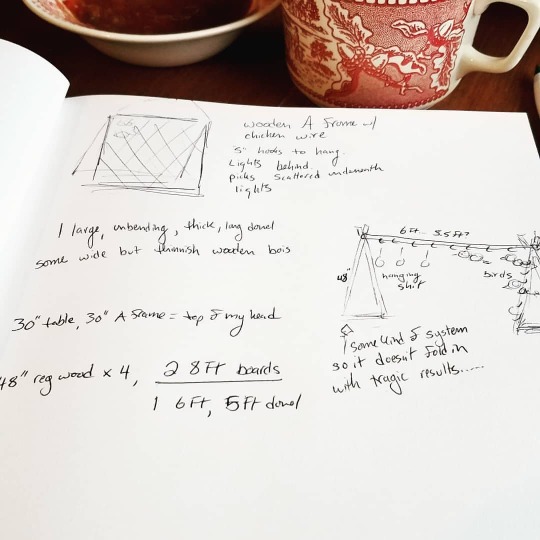 wooden A frame w/
chicken wire
"S" hooks to hang.
Lights behind
picks scattered underneath
lights
1 large, unbending, thick, long dowel
some wide but thinnish wooden bois
6 Ft... 5.5 Ft?
48"
hanging
shit
birds
30" table, 30" A frame = top of my head
some kind of system
so it doesn't fold in
with tragic results.....
48" reg wood x 4, 2 8 Ft boards
1 6 Ft, 5 Ft dowel